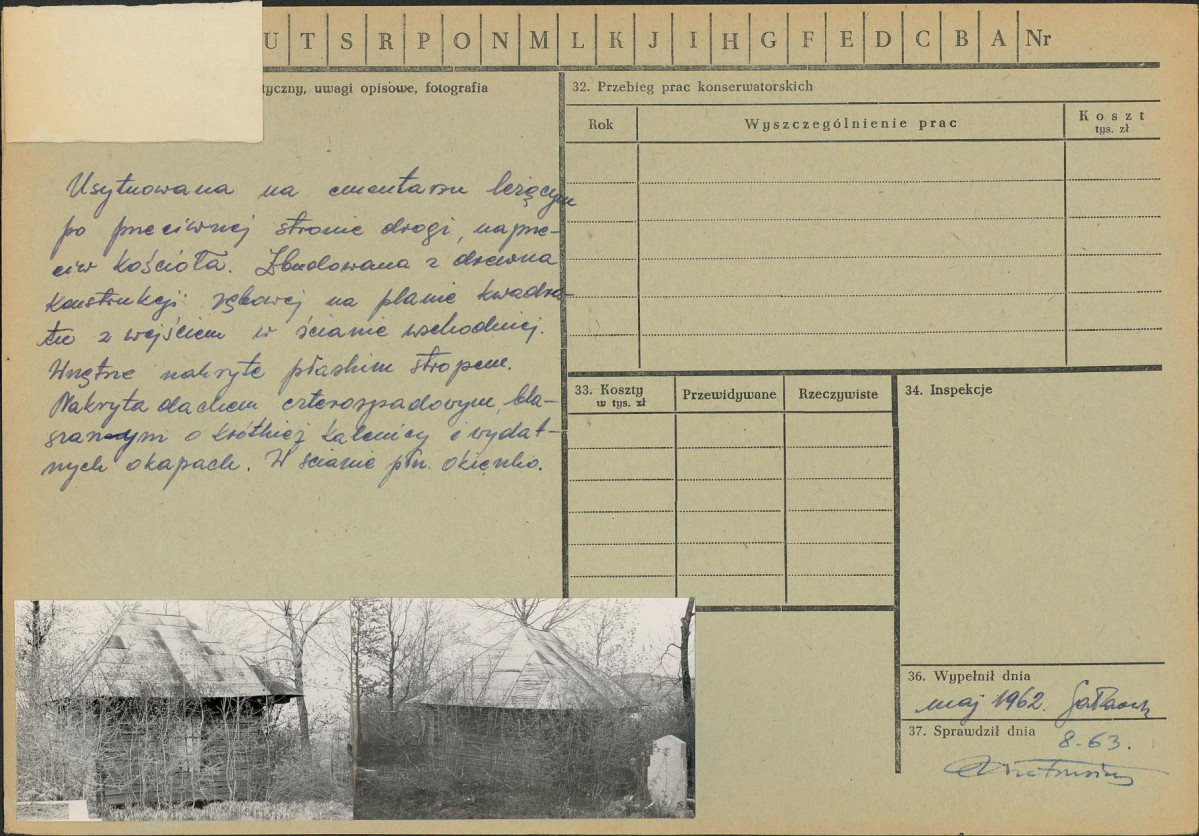 U T S R P O N M L K J I H G F E D C B A Nr
tyczny, uwagi opisowe, fotografia
Usytuowana na cmentarzu leżącym
po przeciwnej stronie drogi, naprze-
ciw kościoła. Zbudowana z drewna
konstrukcji zębowej na planie kwadra-
tu z wejściem w ścianie wschodniej.
Wnętrze nakryte płaskim stropem.
Nakryta dachem czterospadowym, bla-
szanym o krótkiej kalenicy i wydat-
nych okapach. W ścianie płn. okienko.
32. Przebieg prac konserwatorskich
Rok
Wyszczególnienie prac
Koszt
tys. zł
33. Koszty
w tys. zł
Przewidywane
Rzeczywiste
34. Inspekcje
36. Wypełnił dnia
maj 1962.
37. Sprawdził dnia
8.63.